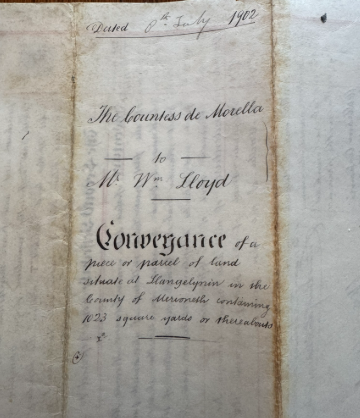 Dated 8th July 1902
The Countess de Morella
to
Mr. Wm. Lloyd
Conveyance of a
piece or parcel of land
situate at Llangelynin in the
County of Merioneth containing
1023 square yards or thereabouts